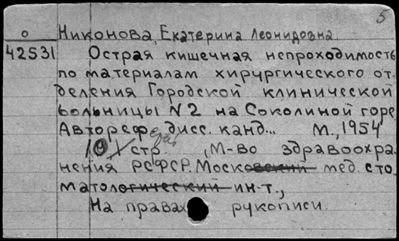 5
о Никонова, Екатерина Леонидовна.
42531 Острая кишечная непроходимость
по материалам хирургического от-
деления Городской клинической
больницы N2 на Соколиной горе
Автореф. дисс. канд... М., 1954
стр., М-во здравоохра-
нения РСФСР. Московский мед. сто-
матологический ин-т.,
На правах рукописи